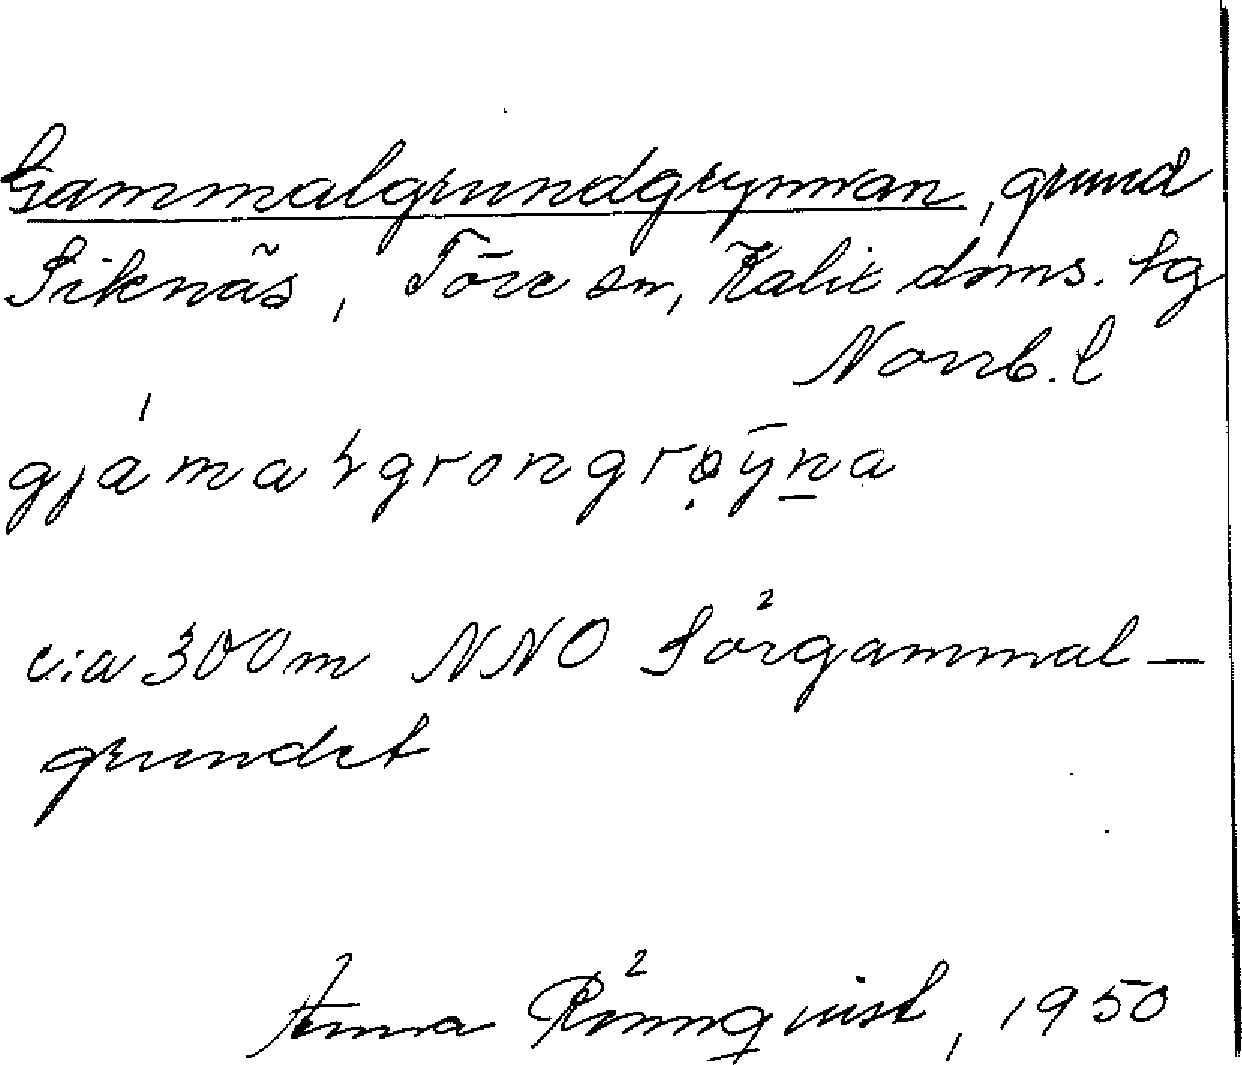 Gammalgrundgrynnan, grund
Siknäs, Töre sn, Kalix doms. tg
Norrb. l
cia 300 m NNO Sörgammal-
grundet
Anna Rönnqvist, 1950